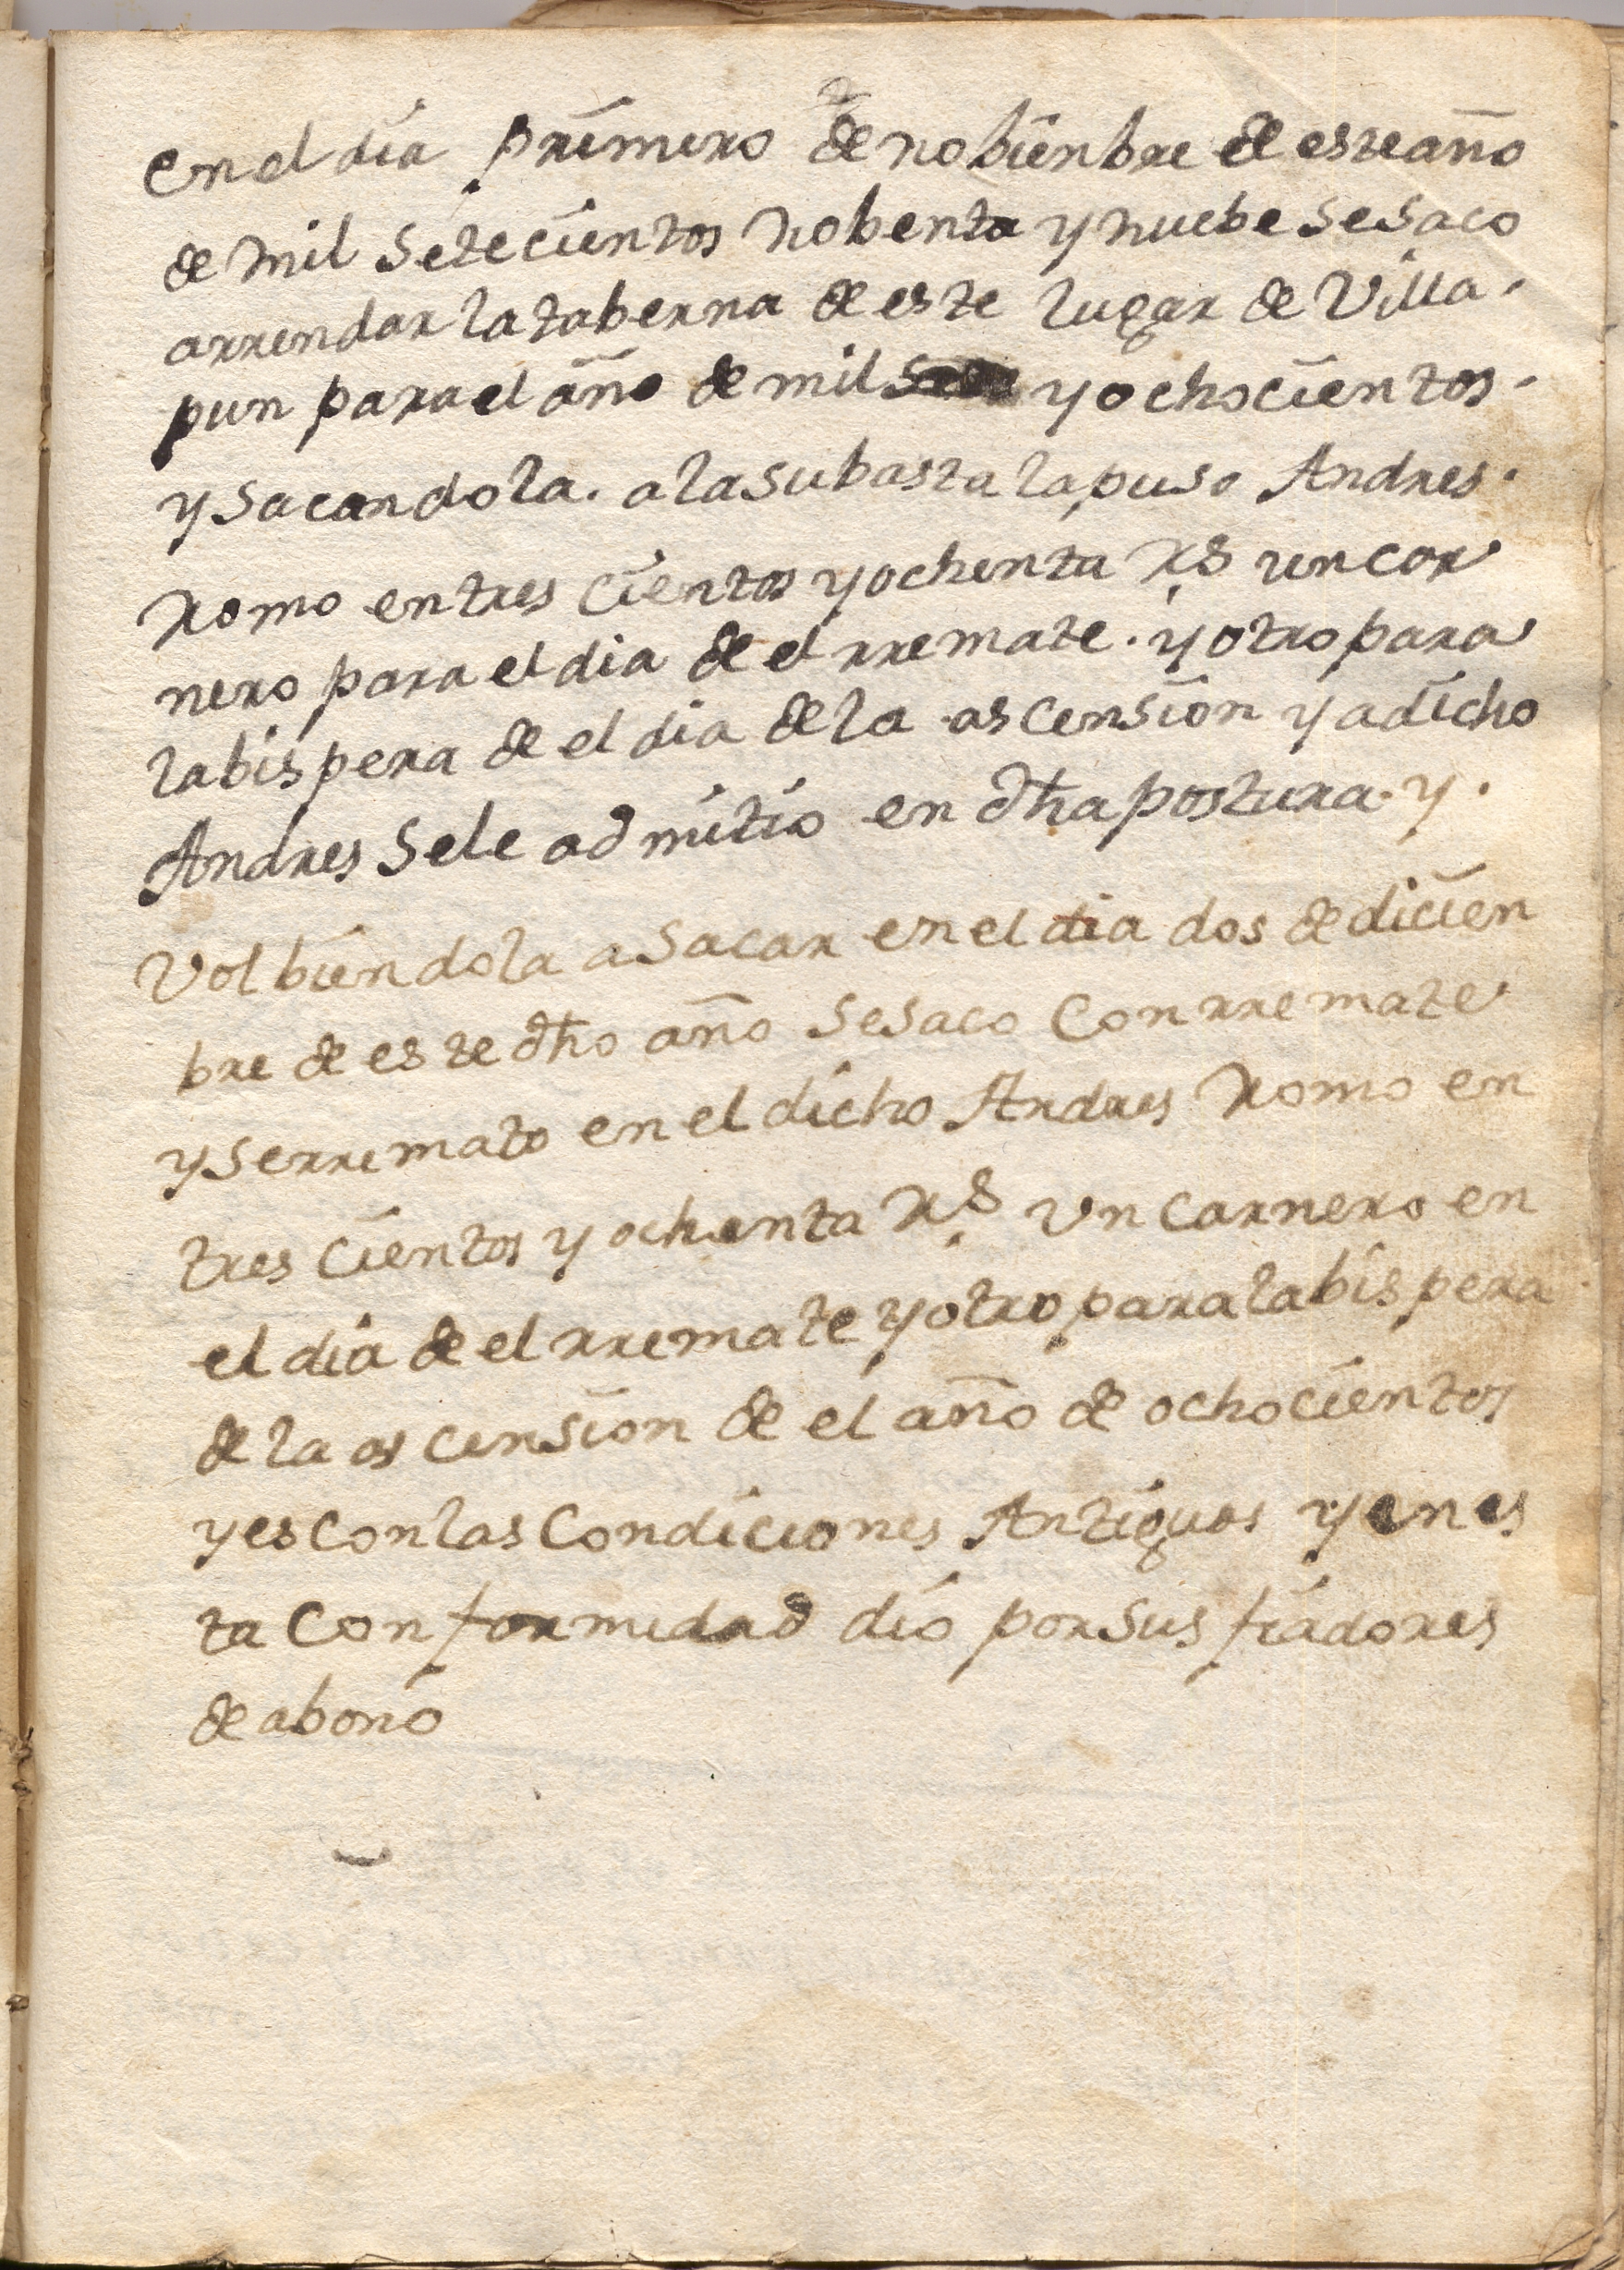 en el dia primero de nobienbre de este año
de mil setecientos nobenta y nuebe se saco
arrendar la taberna de este lugar de Villa
pun para el año de mil y ochocientos
y sacandola. a la subasta la puso Andres.
Romo en tres cientos y ochenta Rs un cor
nero para el dia de el rremate. y otro para
la bispera de el dia de la ascension y a dicho
Andres se le admitio en dha postura. y.
Volbiendola a sacar en el dia dos de dicien
bre de este dho año se saco Con rremate
y se rremato en el dicho Andres Romo en
tres cientos y ochenta Rs un carnero en
el dia de el rremate y otro para la bispera
de la ascension de el año de ochocientos
y es con las Condiciones Antiguas y en es
ta Conformidad dio por sus fiadores
de abono